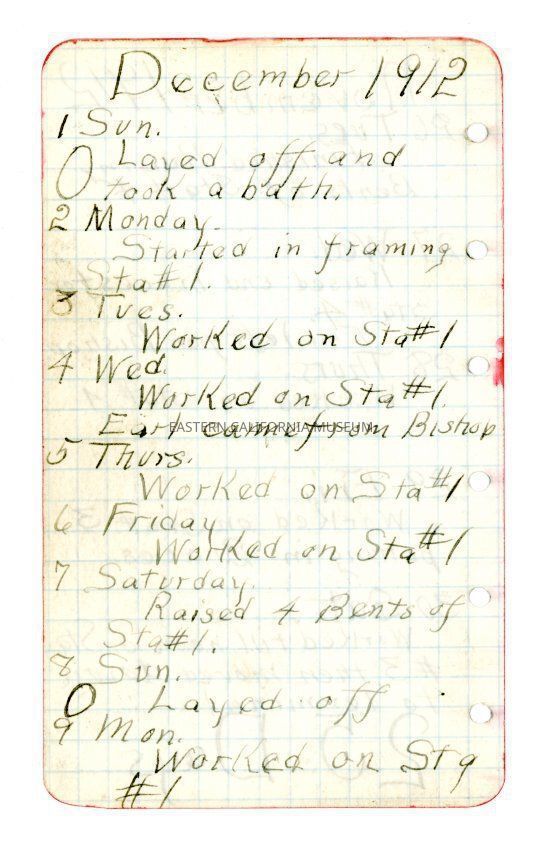 December 1912
1 Sun.
0 Layed off and
took a bath.
2 Monday.
Started in framing
Sta#1.
3 Tues.
Worked on Sta#1
4 Wed.
Worked on Sta#1.
Earl came from Bishop
EASTERN CALIFORNIA MUSEUM
5 Thurs.
Worked on Sta#1
6 Friday
Worked on Sta#1
7 Saturday.
Raised 4 Bents of
Sta#1.
8 Sun.
0 Layed off
9 Mon.
Worked on Sta
#1